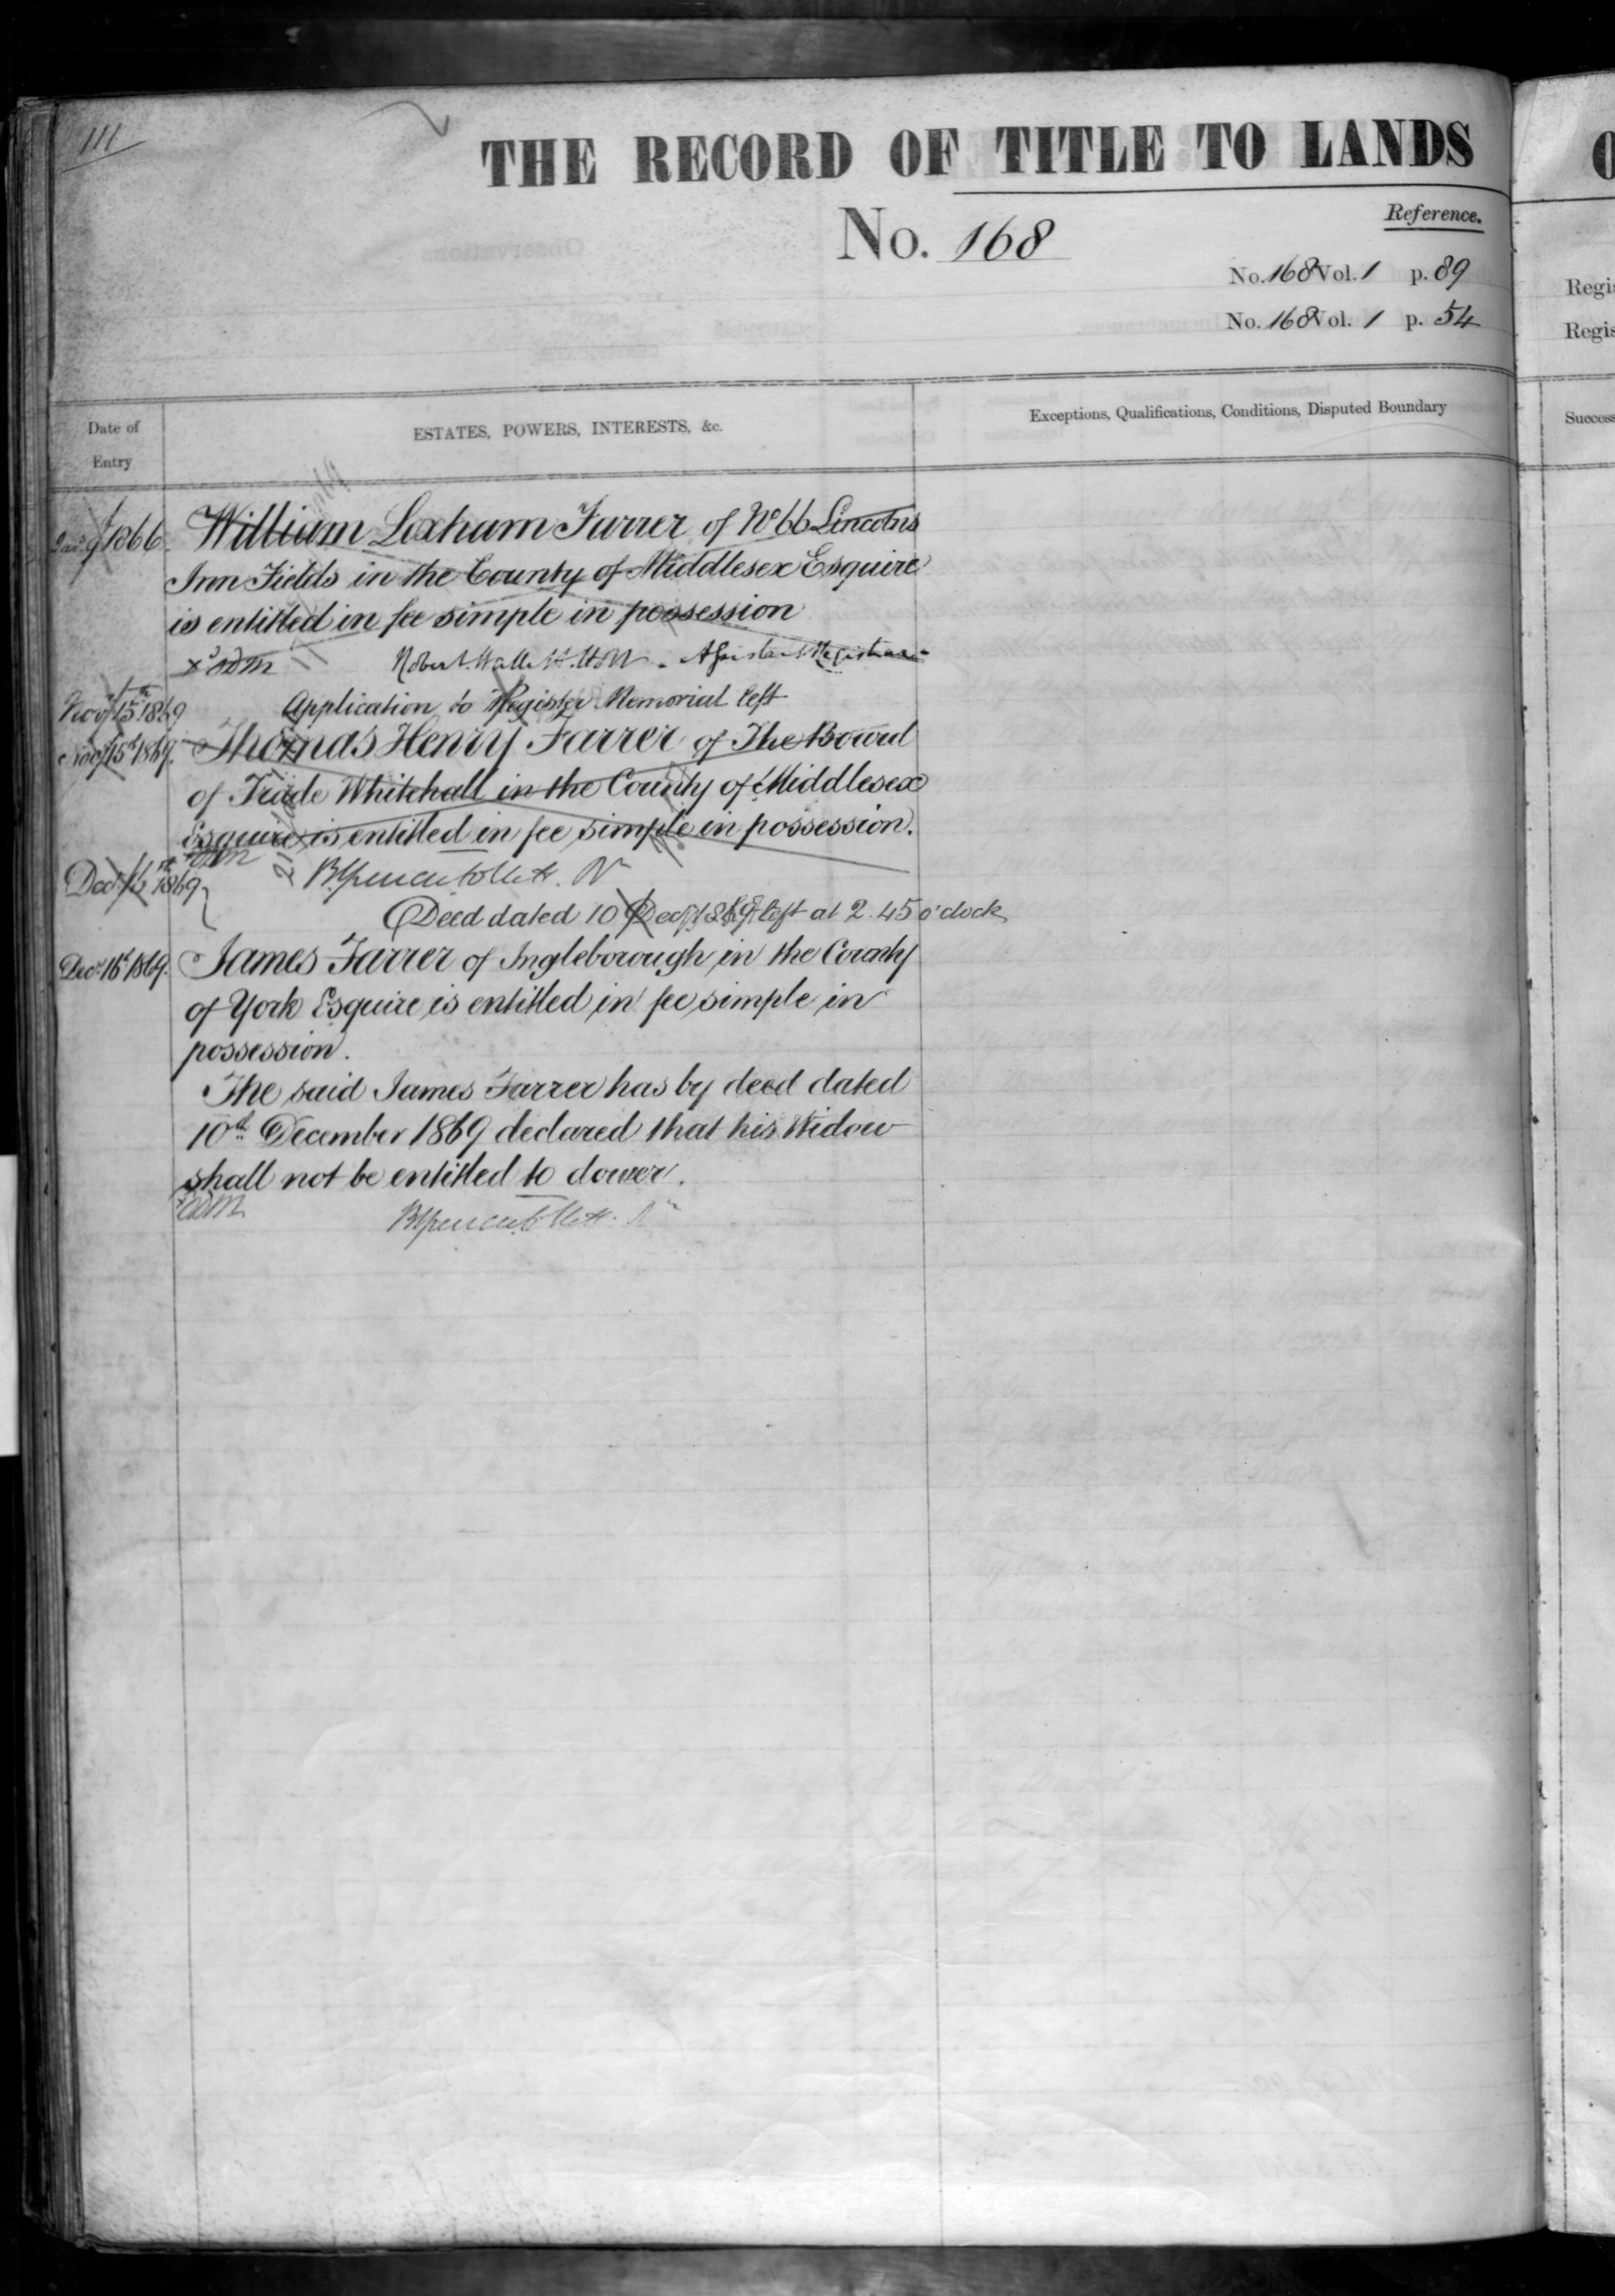 111
THE RECORD OF TITLE TO LANDS
No. 168
Reference.
No. 168 Vol. 1 p. 89
No. 168 Vol. 1 p. 54
Regis
Regis
Date of Entry
ESTATES, POWERS, INTERESTS, &c.
Exceptions, Qualifications, Conditions, Disputed Boundary
Success
Jan 9 1866. William Loxham Farrer of No 66 Lincolns
Inn Fields in the County of Middlesex Esquire
is entitled in fee simple in possession
Assistant Registrar
Nov 15th 1869 Application to Register Memorial left
Nov 15th 1869. Thomas Henry Farrer of The Board
of Trade Whitehall in the County of Middlesex
Esquire is entitled in fee simple in possession.
Decr 16th 1869
Deed dated 10 Decr 1869 left at 2.45 o'clock
Decr 16th 1869. James Farrer of Ingleborough in the County
of York Esquire is entitled in fee simple in
possession.
The said James Farrer has by deed dated
10th December 1869 declared that his Widow
shall not be entitled to dower.